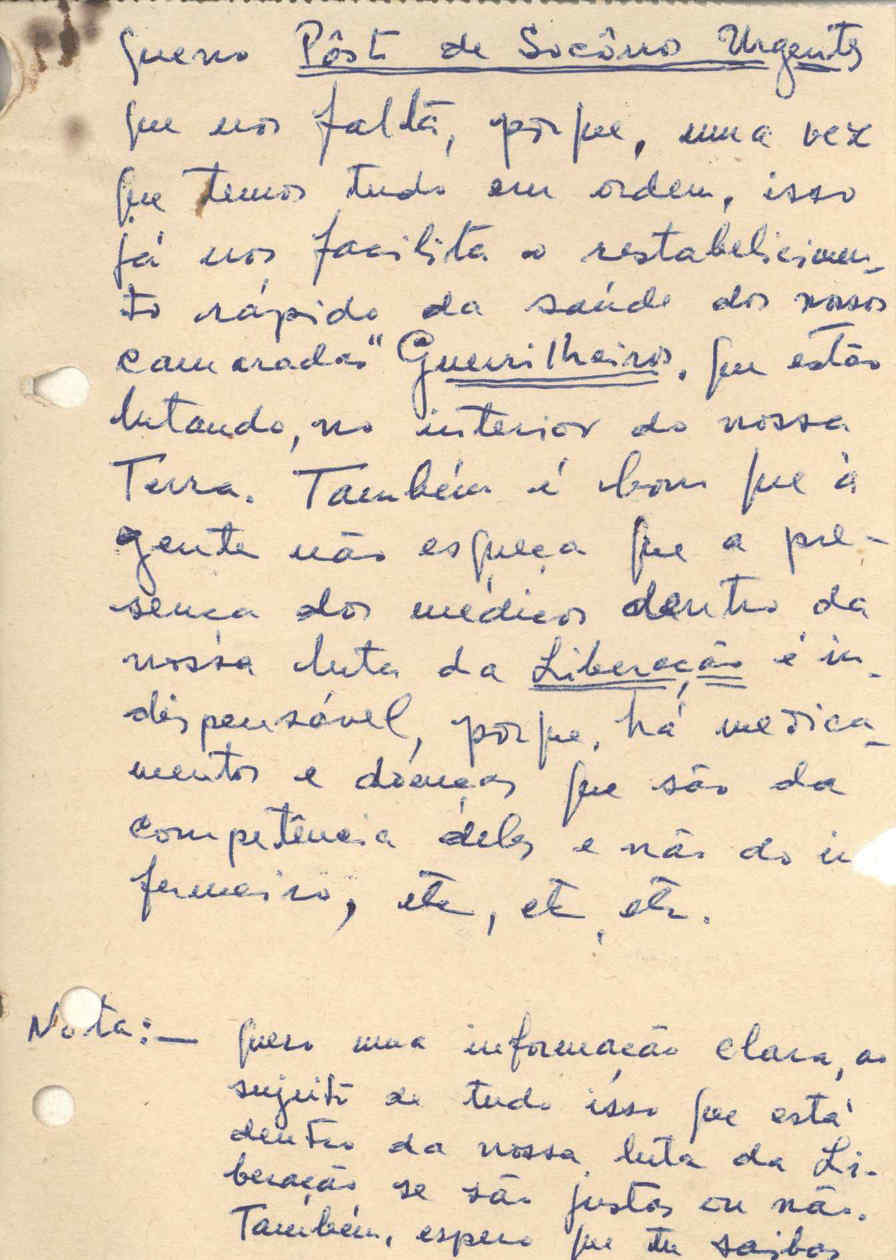 queno Pôst de Socôrro Urgentes
que nos faltã, porque, uma vez
que temos tudo em ordem, isso
já nos facilita o restabelicimen-
to rápido da saúde dos nossos
camaradas "Guerrilheiros, que estão
lutando, no interior do nossa
Terra. Também é bom que à
gente não esqueça que a pre-
sença dos médicos dentro da
nossa luta da Liberação é in-
dispensável, porque, há medica-
mentos e doenças que são da
competência dêles e não do in
fermeiro, etc, etc, etc.
Nota:— Quero uma informação clara, ao
sujeito de tudo isso que está
dentro da nossa luta da Li-
beração se são justos ou não.
Também, espero que tu saibas